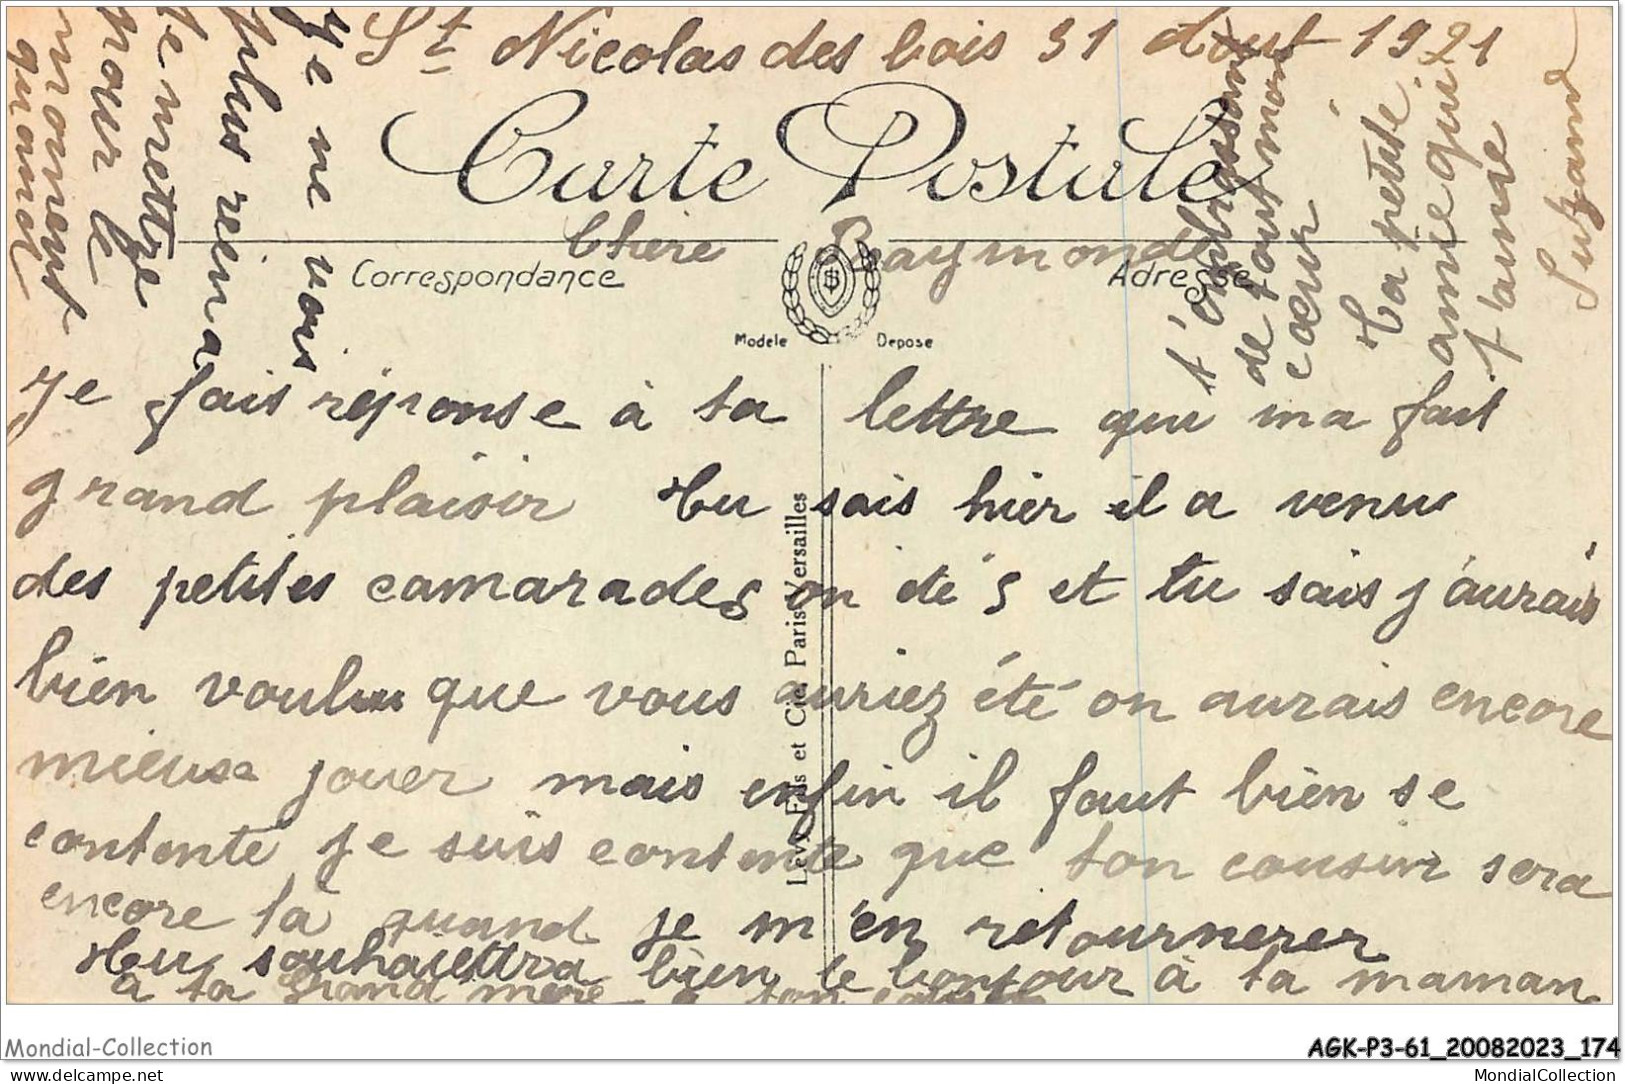 St Nicolas des bois 31 Aout 1921
Carte Postale
Chère Raymonde
Correspondance
Adresse
Modèle Déposé
Lévy Fils et Cie, Paris-Versailles
Je fais réponse à ta lettre qui ma fait
grand plaisir Tu sais hier il a venus
des petites camarades on été 5 et tu sais j'aurais
bien voulu que vous auriez été on aurais encore
mieux jouer mais enfin il faut bien se
contente je suis contente que ton cousin sera
encore là quand je m'en retournerer
Tu souhaiettra bien le bonjour à ta maman
à ta grand mère à ton cousin
Je ne vois
plus rien a
te mettre
pour le
moment
quand
t'embrassant
de tout mon
cœur
Ta petite
amie qui
t'aime
Suzanne
Mondial-Collection
AGK-P3-61_20082023_174
delcampe.net
MondialCollection